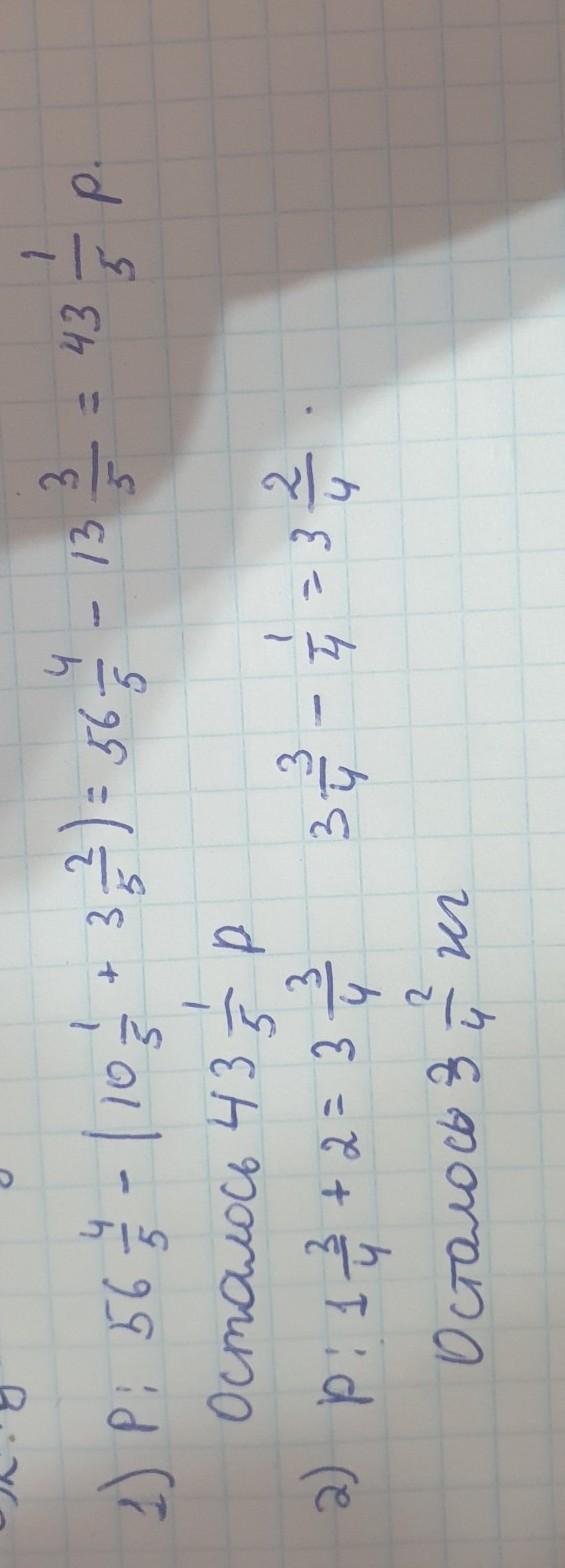 1) р: 56 4/5 - (10 1/5 + 3 2/5) = 56 4/5 - 13 3/5 = 43 1/5 р.
Осталось 43 1/5 р
2) р: 1 3/4 + 2 = 3 3/4 3 3/4 - 1/4 = 3 2/4 .
Осталось 3 2/4 кг